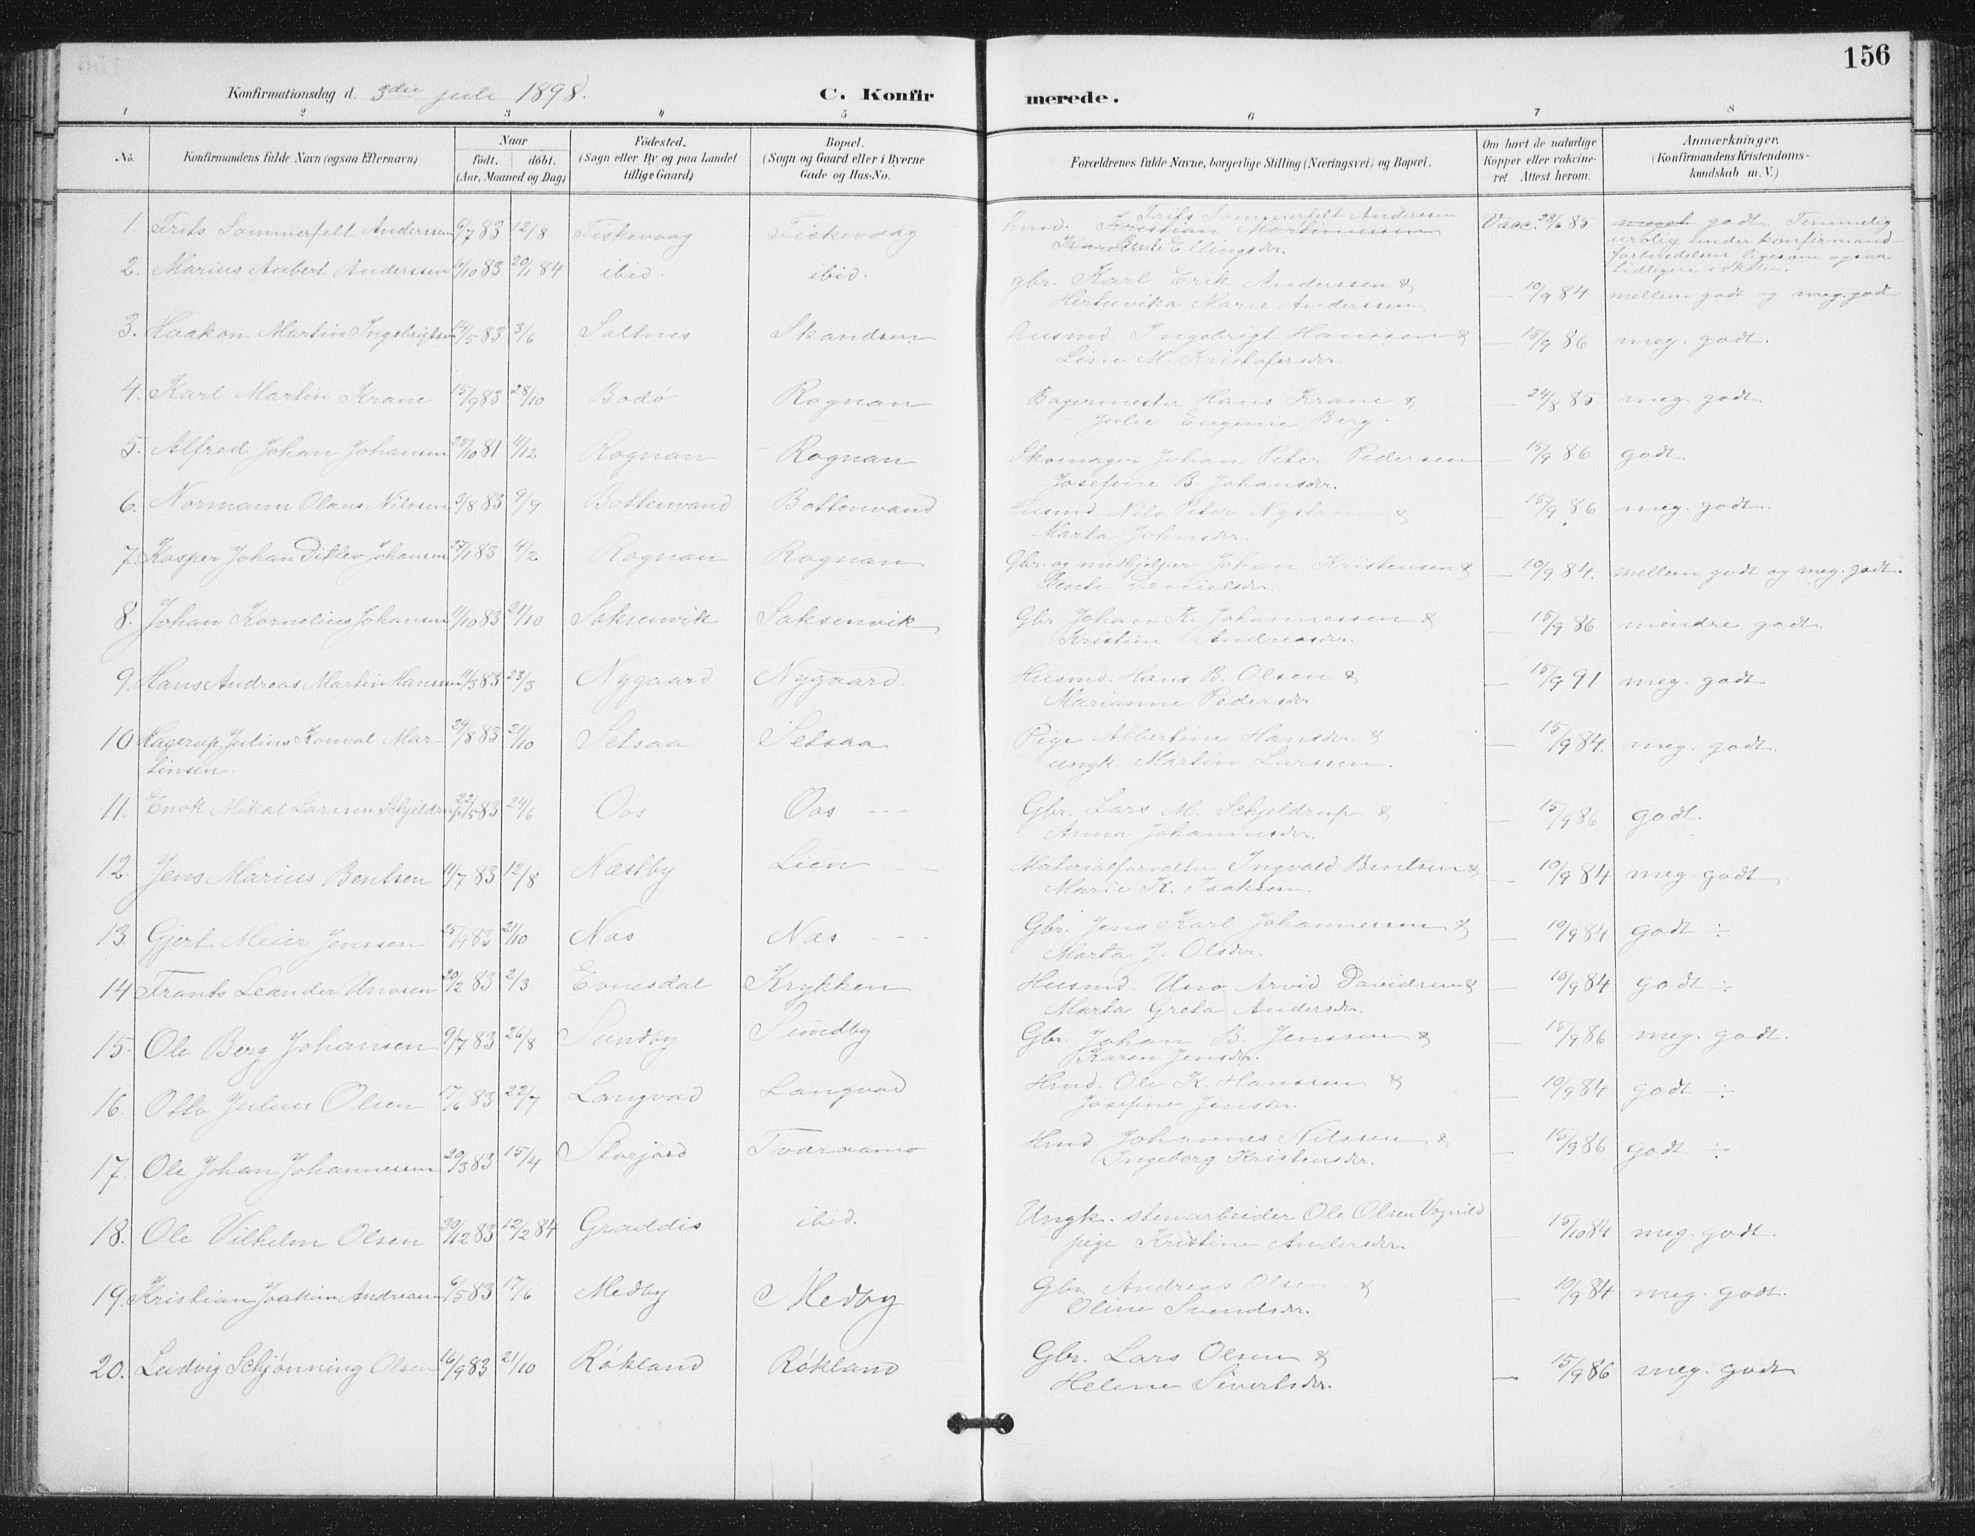 156
Konfirmationsdag d. 3die juli 1898. C. Konfirmerede.
1 2 3 4 5 6 7 8
No. Konfirmandens fulde Navn (ogsaa Efternavn) Naar født. døbt. (Aar, Maaned og Dag) Fødested. (Sogn eller By og paa Landet tillige Gaard) Bopæl. (Sogn og Gaard eller i Byerne Gade og Hus-No. Forældrenes fulde Navne, borgerlige Stilling (Næringsvei) og Bopæl. Om havt de naturlige Kopper eller vakcineret Attest herom. Anmærkninger. (Konfirmandens Kristendomskundskab m. V.)
1. Frits Sommerfelt Anderssen 6/7 83 12/8 Fiskevaag Fiskevaag hmd. Frits Sommerfelt Anderssen Kristian Martinussen
Ellingsdr. Vacc. 28/6 85 meget godt. Temmelig
urolig under konfirmand-
forberedelsen ligesom ogsaa
tidligere i Skolen.
2. Marius Aubert Anderssen 6/10 83 20/1 84 ibid. ibid. gbr. Karl Erik Anderssen &
Hertuvika Marie Anderssen — 10/9 84 mellem godt og meg. godt
3. Haakon Martin Ingebrigtsen 14/5 83 3/6 Saltnes Skandsen husmd. Ingebrigt Hanssen &
Line M. Kristofersdr. — 15/9 86 meg. godt.
4. Karl Martin Krane 15/9 83 28/10 Bodö Rognan Bagermester Hans Krane &
Julie Eugenie Berg. — 24/8 85. meg. godt.
5. Alfred Johan Johansen 25/10 81 4/12 Rognan Rognan Skomager Johan Peter Pedersen
Josefine B. Johansdr. — 15/9 86 godt.
6. Normann Olaus Nilssen 3/8 83 9/9 Bottenvand Bottenvand Husmd. Nils Peter Nystrøm &
Marta Johnsdr. — 15/9 86 meg. godt.
7. Kasper Johan Ditlev Johansen 27/1 83 4/2 Rognan Rognan Gbr. og medhjelper Johan Kristensen &
Danielsdr. — 10/9 84. mellem godt og meg. godt.
8. Johan Kornelius Johansen 11/10 83 21/10 Saksenvik Saksenvik Gbr. Johan K. Johannessen &
Kristine Andreasdr. — 15/9 86 mindre godt.
9. Hans Andreas Martin Hanssen 11/3 83 23/3 Nygaard Nygaard. Husmd. Hans B. Olsen &
Marianne Pedersdr. — 15/9 91 meg. godt
10 Hagerup Julius Konval Mar-
tinsen. 29/8 83 21/10 Setsaa Setsaa Pige Albertine Hansdr. &
ungk. Martin Larssen. — 15/9 84. meg. godt.
11. Enok Mikal Larssen Schjeldrup 22/5 83 24/6 Oos Oos Gbr. Lars M. Schjeldrup &
Anna Johannesdr. — 15/9 86 godt.
12. Jens Marius Bentsen 11/7 83 12/8 Næstby Lien Materialforvalter Ingvald Bentsen &
Marie K. Isaksen. — 10/9 84 meg. godt
13. Gjert Meier Jenssen 25/9 83 21/10 Næs Næs Gbr. Jens Karl Johannessen &
Marta J. Olsdr. — 10/9 84 godt ÷
14 Frants Leander Unosen 20/2 83 2/3 Evnesdal Krykken Husmd. Uno Arvid Davidsen &
Marta Greta Andersdr. — 10/9 84 godt ÷
15. Ole Berg Johansen 9/7 83 26/8 Sundby Sundby Gbr. Johan B. Jenssen &
Karen Jensdr. — 15/9 86 meg. godt.
16. Otto Julius Olsen 17/6 83 22/7 Langvad Langvad Hmd. Ole K. Hanssen &
Josefine Jensdr. — 10/9 84 godt ÷
17. Ole Johan Johannessen 20/3 83 15/4 Storjord Tværaamo Hmd. Johannes Nilssen &
Ingeborg Kristensdr. — 15/9 86 godt ÷
18. Ole Vilhelm Olsen 30/12 83 12/2 84 Graddis ibid. Ungk. stenarbeider Ole Olsen
pige Kristine Andersdr. — 15/10 84 meg. godt.
19. Kristian Joakim Andreassen 6/5 83 17/6 Medby Medby Gbr. Andreas Olsen &
Oline Svendsdr. — 10/9 84 meg. godt.
20. Ludvig Schjønning Olsen 16/9 83 21/10 Røkland Røkland Gbr. Lars Olsen &
Helene Sivertsdr. — 15/9 86 meg. godt